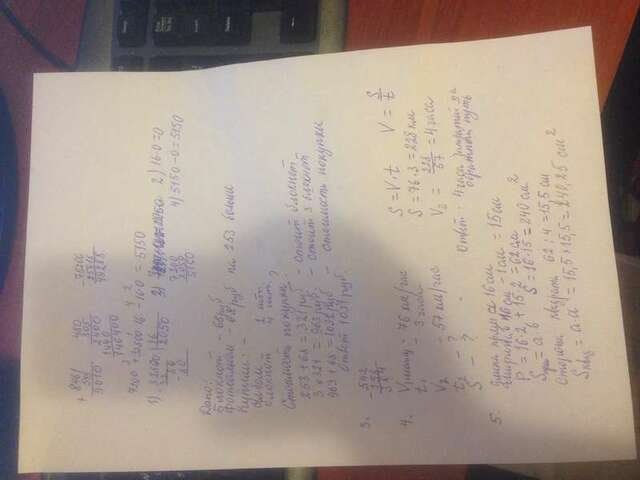 + 8461 480 - 75106
549 305
9010 2400 49288
1440
146400
7200 + 32800 : 16 - 16·0 = 5150
1) 32800 | 16 2) 3) 16·0=0
32 2050
80 7200
80 2050
5150
4) 5150 - 0 = 5150
Дано:
Блокнот - 68 руб
Фотоальбом - 68 руб на 253 больше
Купили: -
альбом 1 шт.
блокнот 4 шт.
Стоимость покупки ?
253 + 68 = 321 руб - стоит блокнот
3 · 321 = 963 руб - стоит 3 блокнот
963 + 68 = 1031 руб - стоимость покупки
Ответ 1031 руб.
3.
- 542
158
384
4. V1 = 76 км/час S = V·t V = S/t
t1 = 3 часа S = 76·3 = 228 км
V2 - 57 км/час V2 = 228/57 = 4 часа
t2 - ?
S - ?
Ответ - 4 часа затратит на обратный путь
5. Длина прям 16 см
Ширина 16 см - 1 см = 15 см
P = 16·2 + 15·2 = 62 см
S = a·b S = 16·15 = 240 см²
Сторона квадрата 62 : 4 = 15,5 см
S квад = a·a = 15,5 · 15,5 = 240,25 см²